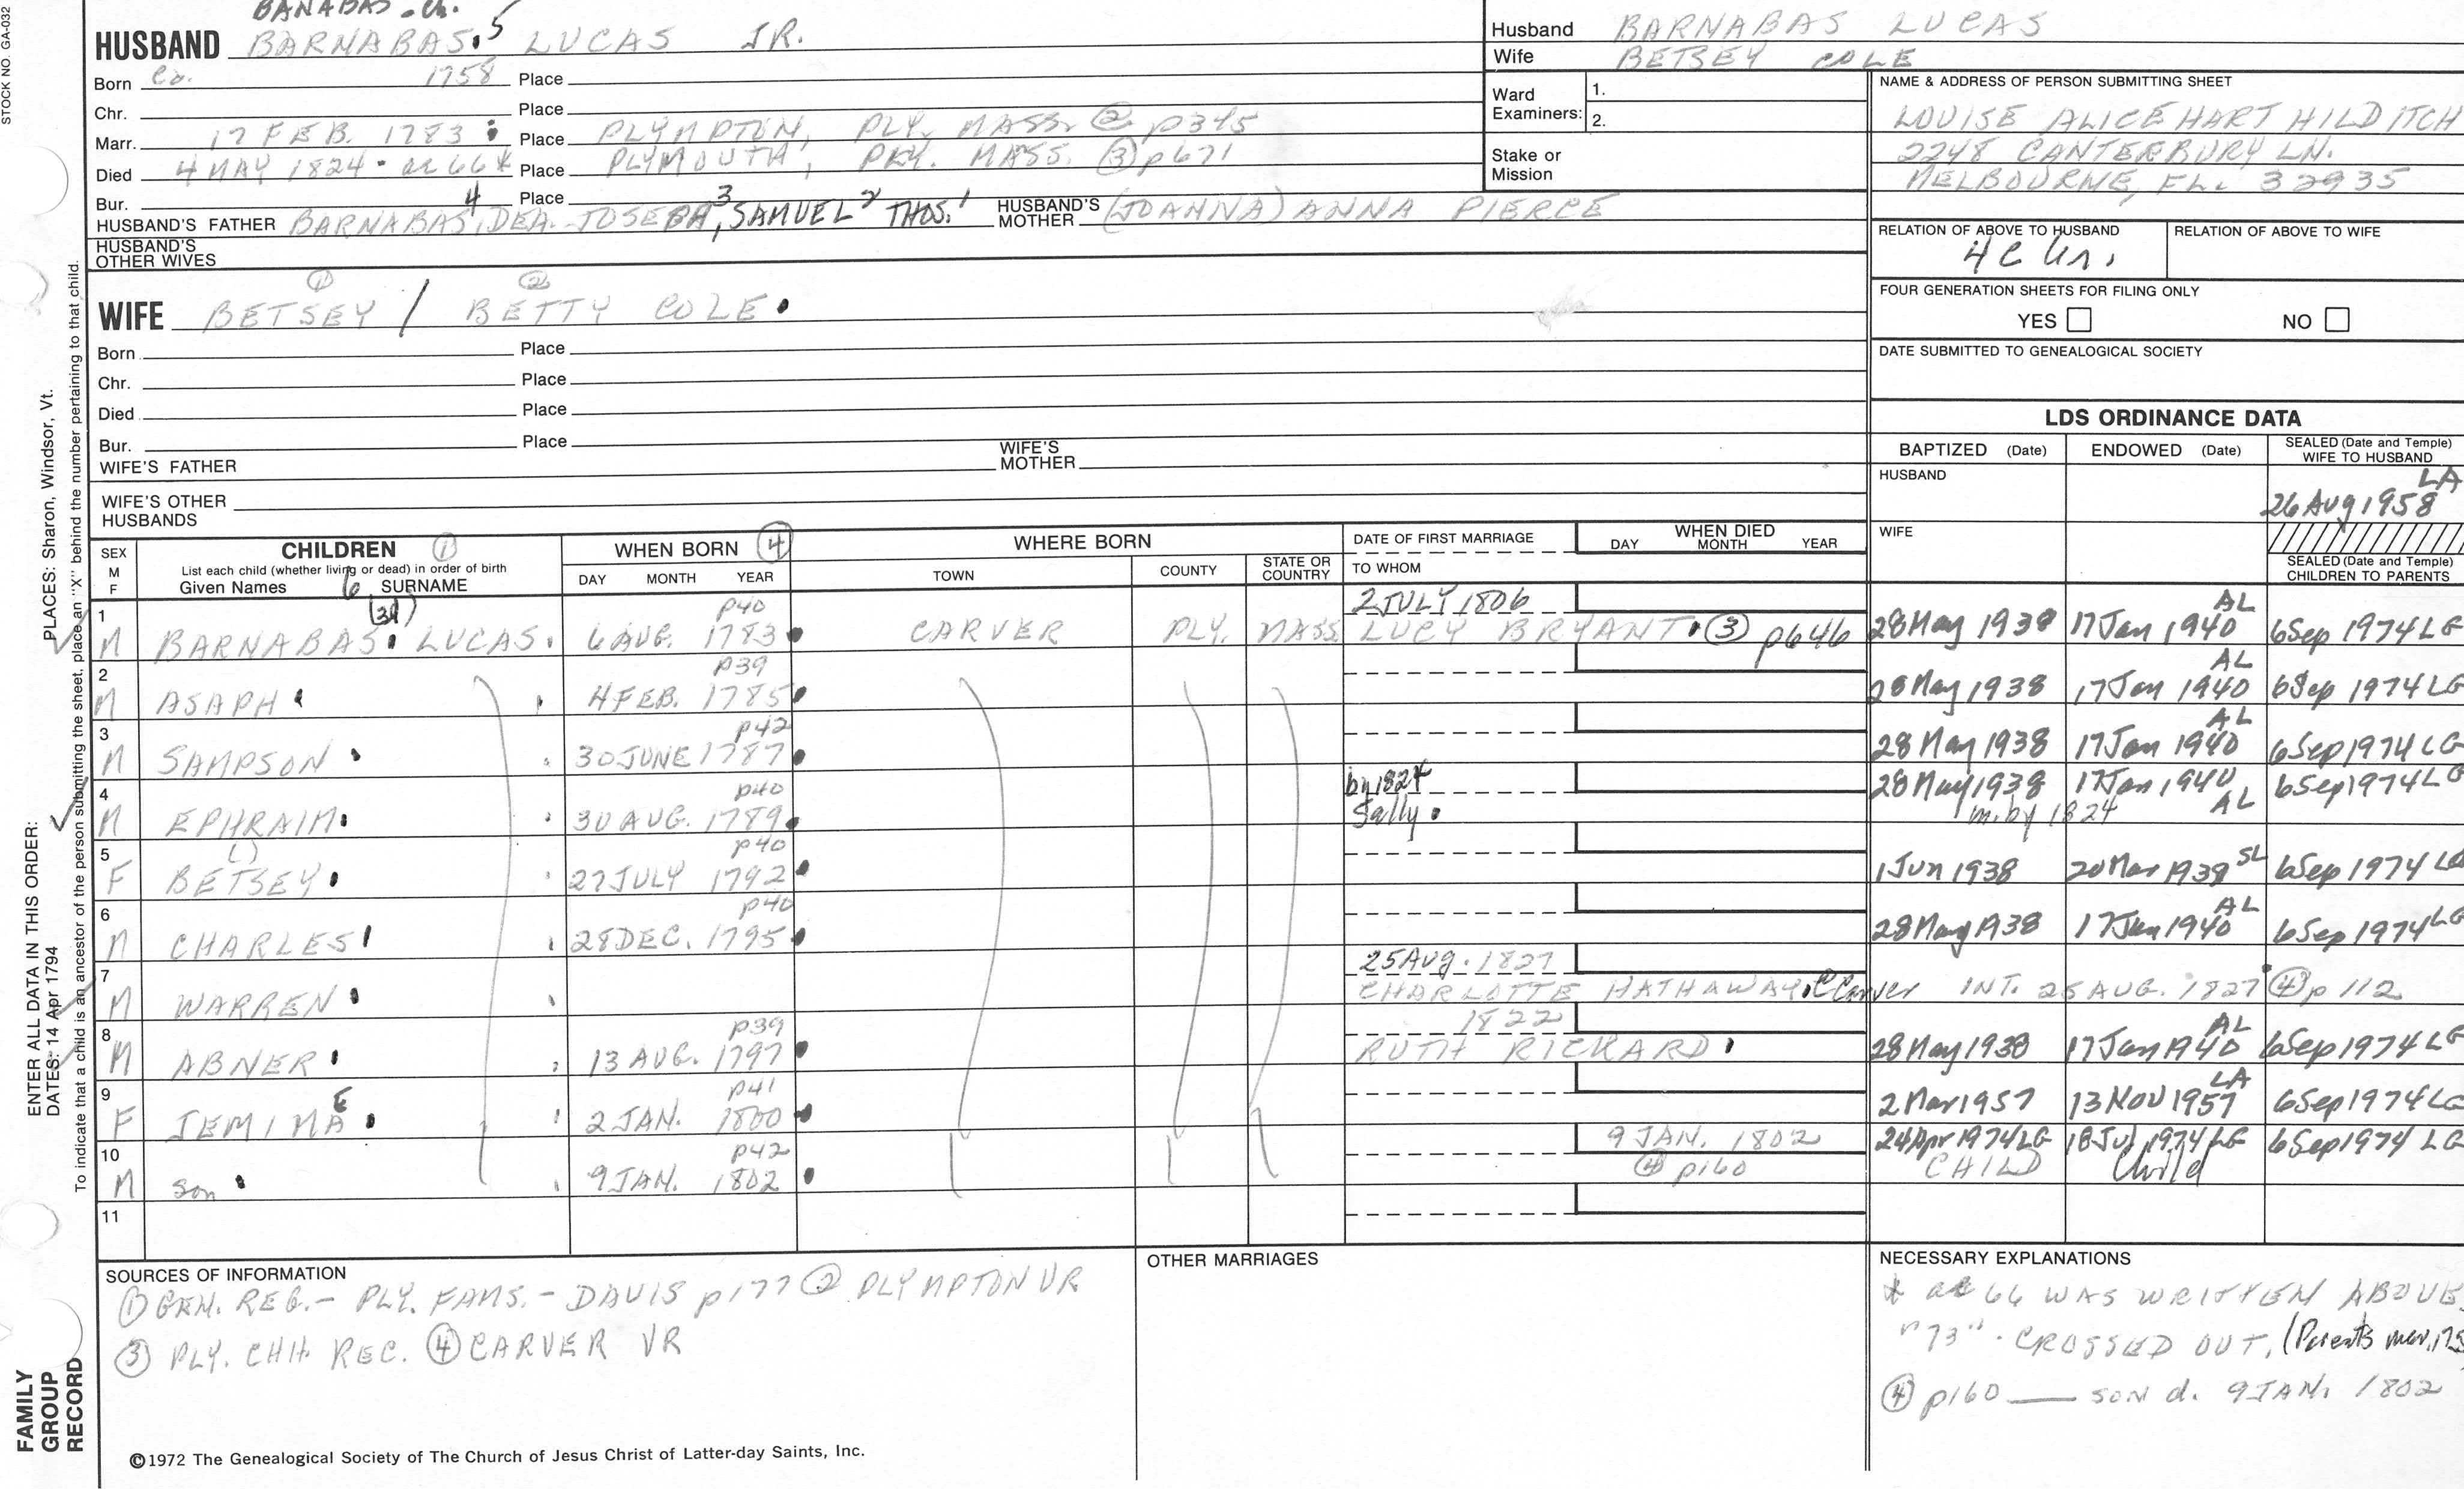 STOCK NO. GA-032
BANABAS - Ch.
HUSBAND BARNABAS. 5 LUCAS JR.
Born Ca. 1758 Place
Chr. Place
Marr. 17 FEB. 1783 : Place PLYMPTON, PLY. MASS. ② p345
Died 4 MAY 1824 - ae 66* Place PLYMOUTH, PLY. MASS. ③ p671
Bur. Place
HUSBAND'S FATHER BARNABAS 4, DEA. JOSEPH 3, SAMUEL 2 THOS. 1 HUSBAND'S MOTHER (JOANNA) ANNA PIERCE
HUSBAND'S OTHER WIVES
① ②
WIFE BETSEY / BETTY COLE.
Born Place
Chr. Place
Died Place
Bur. Place
WIFE'S FATHER WIFE'S MOTHER
WIFE'S OTHER HUSBANDS
Husband BARNABAS LUCAS
Wife BETSEY COLE
Ward Examiners: 1.
2.
Stake or Mission
NAME & ADDRESS OF PERSON SUBMITTING SHEET
LOUISE ALICE HART HILDITCH
2248 CANTERBURY LN.
MELBOURNE, FL. 32935
RELATION OF ABOVE TO HUSBAND RELATION OF ABOVE TO WIFE
4C
FOUR GENERATION SHEETS FOR FILING ONLY
YES NO
DATE SUBMITTED TO GENEALOGICAL SOCIETY
LDS ORDINANCE DATA
BAPTIZED (Date) ENDOWED (Date) SEALED (Date and Temple) WIFE TO HUSBAND
HUSBAND LA
26 Aug 1958
WIFE
SEALED (Date and Temple) CHILDREN TO PARENTS
SEX M F CHILDREN ① WHEN BORN ④ WHERE BORN DATE OF FIRST MARRIAGE WHEN DIED
List each child (whether living or dead) in order of birth
Given Names 6 SURNAME DAY MONTH YEAR TOWN COUNTY STATE OR COUNTRY TO WHOM DAY MONTH YEAR
(3d) p40 2 JULY 1806 AL
1 M BARNABAS. LUCAS. 6 AUG. 1783 CARVER PLY. MASS LUCY BRYANT. ③ p646 28 May 1938 17 Jan 1940 6 Sep 1974 LG
p39 AL
2 M ASAPH 4 FEB. 1785 28 May 1938 17 Jan 1940 6 Sep 1974 LG
p42 AL
3 M SAMPSON 30 JUNE 1787 28 May 1938 17 Jan 1940 6 Sep 1974 LG
p40 by 1824 28 May 1938 17 Jan 1940 6 Sep 1974 LG
4 M EPHRAIM. 30 AUG. 1789 Sally. m. by 1824 AL
p40
5 F BETSEY. 27 JULY 1792 1 Jun 1938 20 Mar 1939 SL 6 Sep 1974 LG
p40 AL
6 M CHARLES 28 DEC. 1795 28 May 1938 17 Jan 1940 6 Sep 1974 LG
25 Aug. 1827
7 M WARREN CHARLOTTE HATHAWAY, Carver INT. 25 AUG. 1827 ④ p 112
p39 1822 AL
8 M ABNER 13 AUG. 1797 RUTH RICKARD 28 May 1938 17 Jan 1940 6 Sep 1974 LG
E p41 LA
9 F JEMIMA 2 JAN. 1800 2 Mar 1957 13 NOV 1957 6 Sep 1974 LG
p42 9 JAN. 1802 24 Apr 1974 LG 18 Jul 1974 LG 6 Sep 1974 LG
10 M son 9 JAN. 1802 ④ p160 CHILD Child
11
SOURCES OF INFORMATION
① GEN. REG. - PLY. FAMS. - DAVIS p177 ② PLYMPTON VR
③ PLY. CHH. REC. ④ CARVER VR
OTHER MARRIAGES
NECESSARY EXPLANATIONS
* ae 66 WAS WRITTEN ABOVE
"73" - CROSSED OUT. (Parents mar. 175
④ p160 — SON d. 9 JAN. 1802
©1972 The Genealogical Society of The Church of Jesus Christ of Latter-day Saints, Inc.
FAMILY GROUP RECORD
ENTER ALL DATA IN THIS ORDER:
DATES: 14 Apr 1794
PLACES: Sharon, Windsor, Vt.
To indicate that a child is an ancestor of the person submitting the sheet, place an "X" behind the number pertaining to that child.